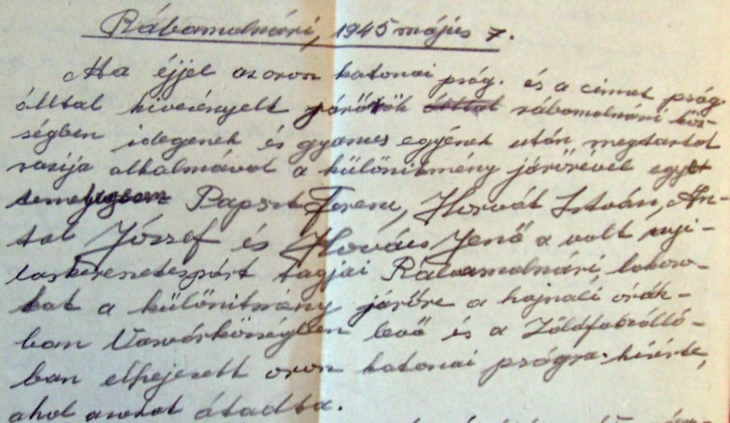 Rábamolnári, 1945 május 7.
Ma éjjel az orosz katonai prság. és a címet prság.
álltal kivezényelt járőrök álltal rábamolnári köz-
ségben idegenek és gyanus egyének után megtartot
razzija alkalmával a különitmény járőrével együt
Papszt Ferenc, Horvát István, An-
tal József és Kovács Jenő a volt nyi-
laskeresztespárt tagjai Rábamolnári, lakoso-
kat a különitmény járőre a hajnali órák-
ban Vasvárközségben levő és a Zöldfabzálló-
ban elhejezett orosz katonai prságra kisérte,
ahol azokat átadta.